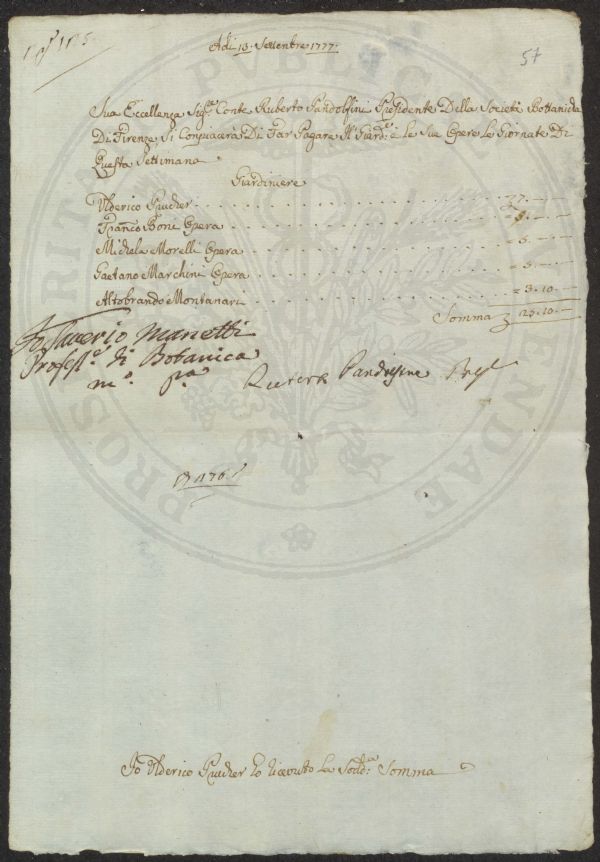 Adì 13: Settembre 1777:
57
Sua Eccellenza Sig.e Conte Ruberto Pandolfini Presidente Della Società Bottanicha
Di Firenze Si Conpiacerà Di Far Pagare Al Giard.e e le Sue Opere Le Giornate Di
Questa Settimana
Giardiniere
Ulderico Prucher
Franco Boni Opera
Michele Morelli Opera
Gaetano Marchini Opera
Altobrando Montanari
3.10.—
Somma 25.10.—
Io Saverio Manetti
Profess.e di Botanica
m.o p.a
Ruberto Pandolfini
Io Ulderico Prucher ho riceuto La Sodd.a Somma
PUBLICAE
PROSPERITATI
AUGENDAE